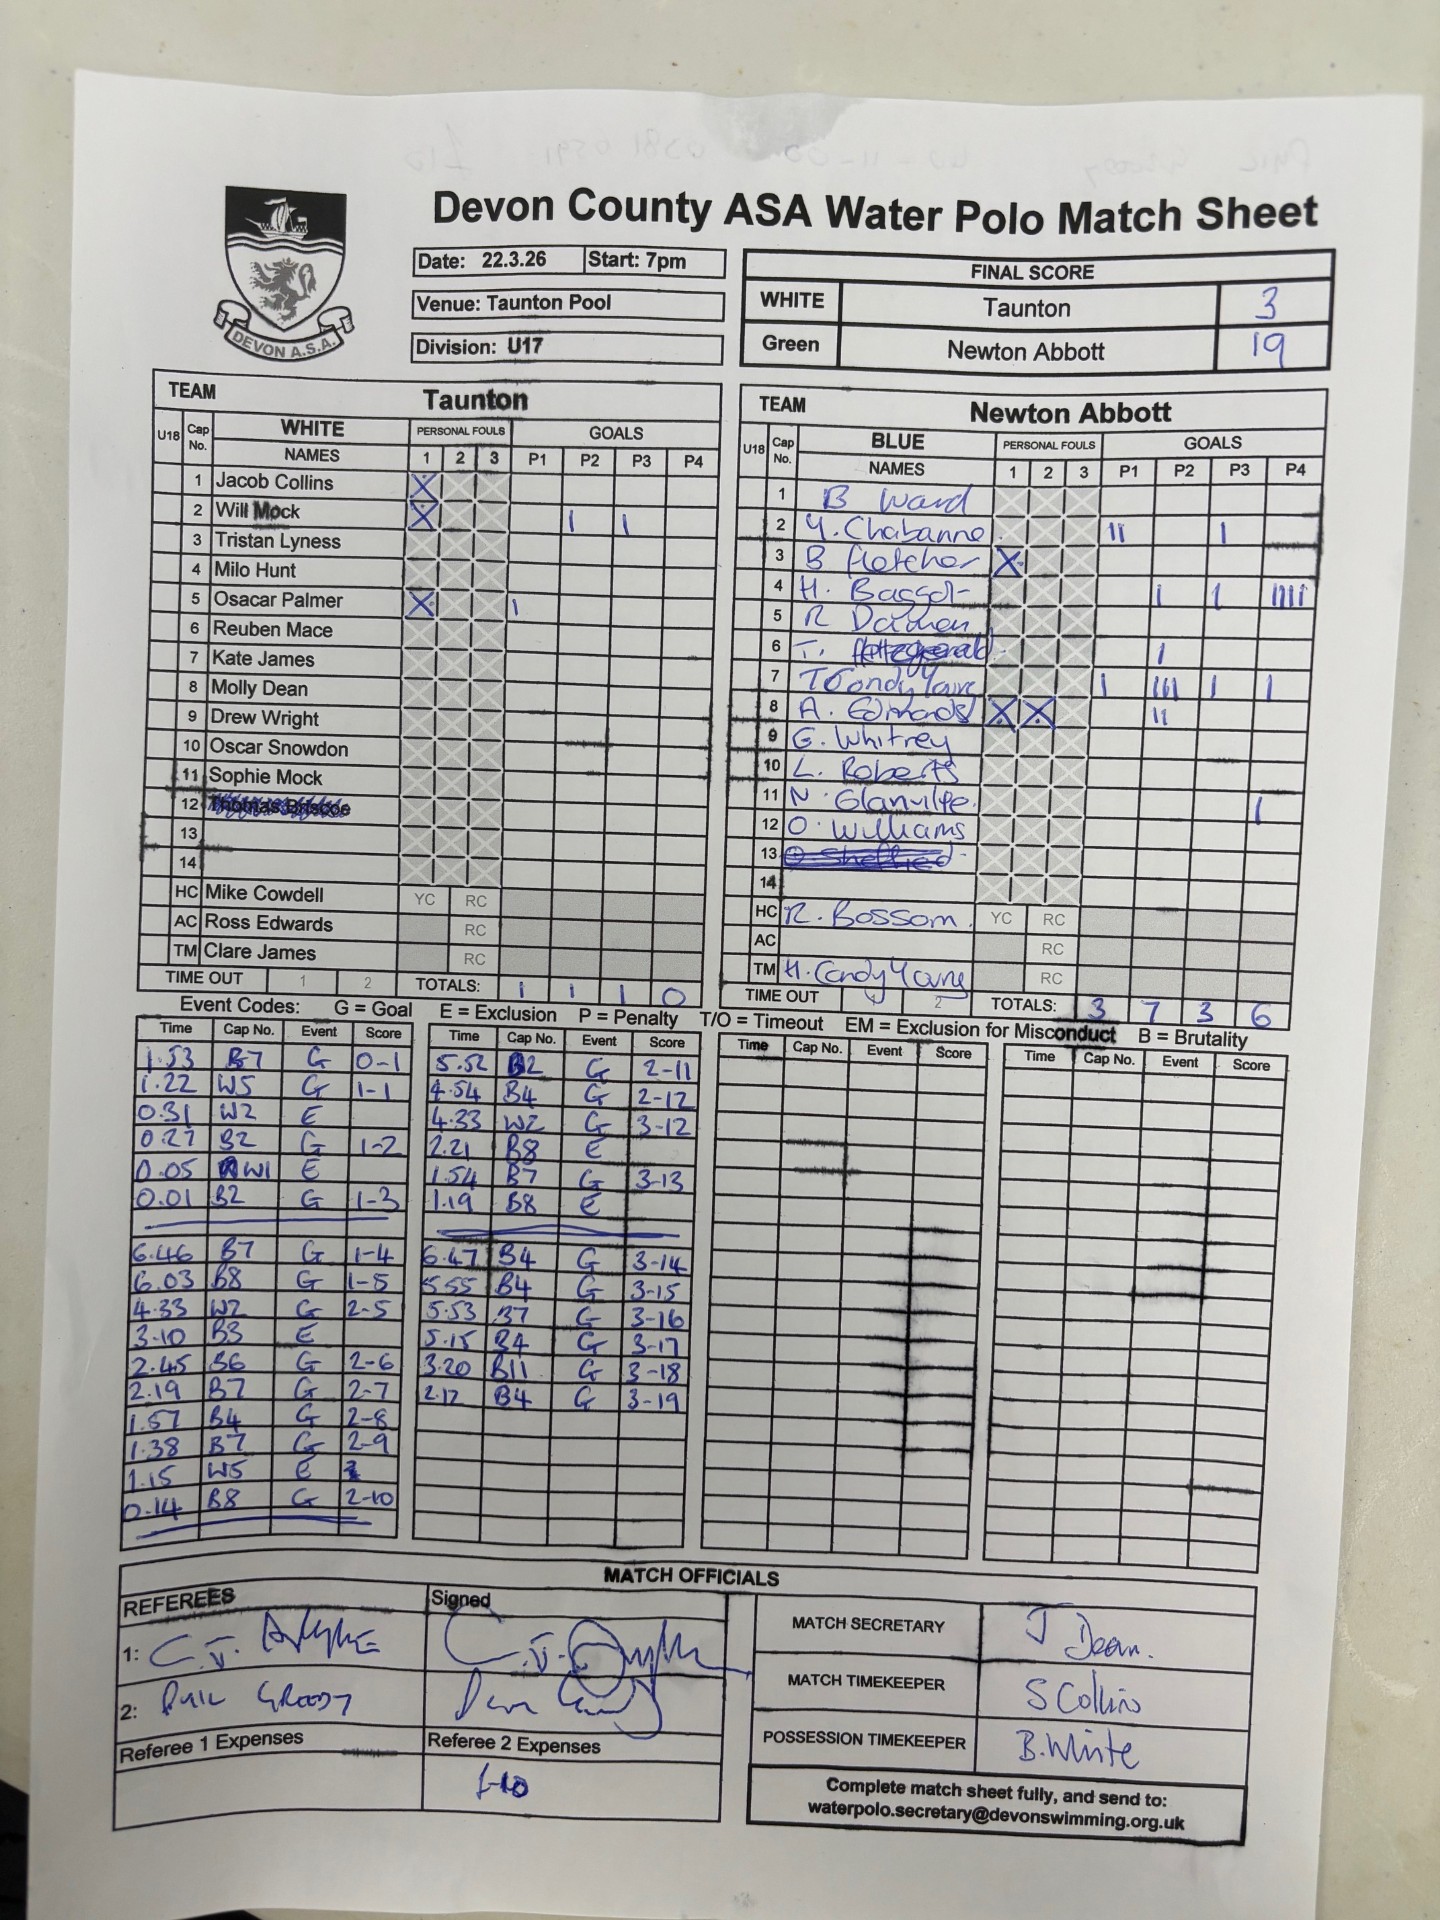 Devon County ASA Water Polo Match Sheet
DEVON A.S.A.
Date: 22.3.26 Start: 7pm
Venue: Taunton Pool
Division: U17
FINAL SCORE
WHITE Taunton 3
Green Newton Abbott 19
TEAM Taunton
U18 Cap No. WHITE PERSONAL FOULS GOALS
NAMES 1 2 3 P1 P2 P3 P4
1 Jacob Collins X
2 Will Mock X I I
3 Tristan Lyness
4 Milo Hunt
5 Osacar Palmer X I
6 Reuben Mace
7 Kate James
8 Molly Dean
9 Drew Wright
10 Oscar Snowdon
11 Sophie Mock
12 Thomas Briscoe
13
14
HC Mike Cowdell YC RC
AC Ross Edwards RC
TM Clare James RC
TIME OUT 1 2 TOTALS: 1 1 1 0
TEAM Newton Abbott
U18 Cap No. BLUE PERSONAL FOULS GOALS
NAMES 1 2 3 P1 P2 P3 P4
1 B Ward
2 Y. Chabanne II I
3 B Fletcher X
4 H. I I IIII
5 R
6 T. I
7 I III I I
8 A. X X II
9 G. Whitrey
10 L. Roberts
11 N. Glanville I
12 O. Williams
13 Sheffied
14
HC R. Bossom YC RC
AC RC
TM H. RC
TIME OUT 1 2 TOTALS: 3 7 3 6
Event Codes: G = Goal E = Exclusion P = Penalty T/O = Timeout EM = Exclusion for Misconduct B = Brutality
Time Cap No. Event Score
1.53 B7 G 0-1
1.22 W5 G 1-1
0.31 W2 E
0.27 B2 G 1-2
0.05 W1 E
0.01 B2 G 1-3
6.46 B7 G 1-4
6.03 B8 G 1-5
4.33 W2 G 2-5
3.10 B3 E
2.45 B6 G 2-6
2.19 B7 G 2-7
1.57 B4 G 2-8
1.38 B7 G 2-9
1.15 W5 E
0.14 B8 G 2-10
Time Cap No. Event Score
5.52 B2 G 2-11
4.54 B4 G 2-12
4.33 W2 G 3-12
2.21 B8 E
1.54 B7 G 3-13
1.19 B8 E
6.47 B4 G 3-14
5.55 B4 G 3-15
5.53 B7 G 3-16
5.15 B4 G 3-17
3.20 B11 G 3-18
2.12 B4 G 3-19
Time Cap No. Event Score
Time Cap No. Event Score
MATCH OFFICIALS
REFEREES Signed
1: C.J.
2: PHIL GREEDY
Referee 1 Expenses Referee 2 Expenses
£10
MATCH SECRETARY J Dean.
MATCH TIMEKEEPER S Collins
POSSESSION TIMEKEEPER B. White
Complete match sheet fully, and send to:
waterpolo.secretary@devonswimming.org.uk